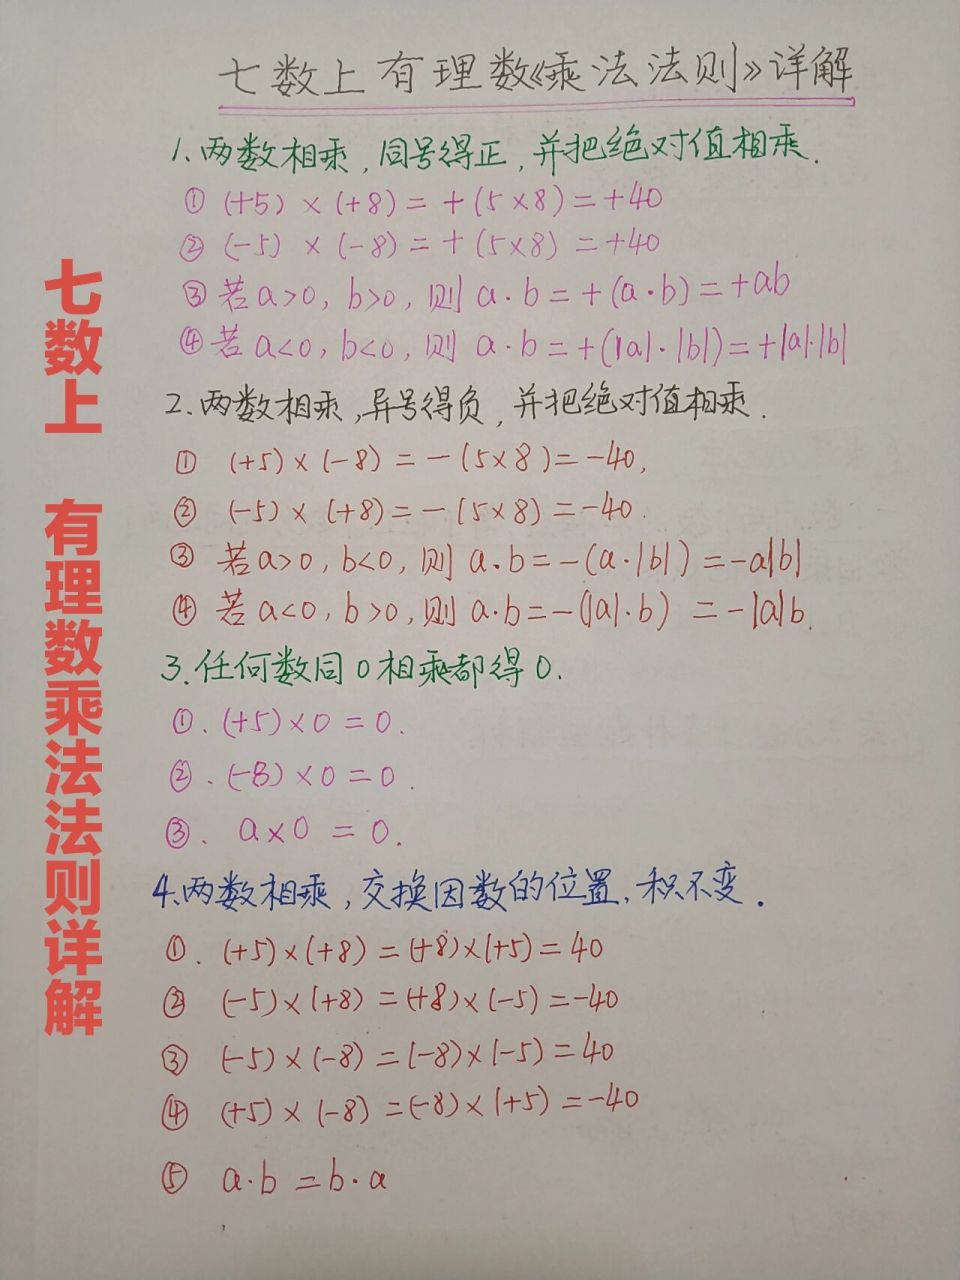 七数上有理数《乘法法则》详解
1.两数相乘,同号得正,并把绝对值相乘.
① (+5)×(+8)=+(5×8)=+40
② (-5)×(-8)=+(5×8)=+40
③ 若a>0,b>0,则a·b=+(a·b)=+ab
④ 若a<0,b<0,则a·b=+(|a|·|b|)=+|a|·|b|
2.两数相乘,异号得负,并把绝对值相乘.
① (+5)×(-8)=-(5×8)=-40,
② (-5)×(+8)=-(5×8)=-40.
③ 若a>0,b<0,则a·b=-(a·|b|)=-a|b|
④ 若a<0,b>0,则a·b=-(|a|·b)=-|a|b.
3.任何数同0相乘都得0.
①.(+5)×0=0.
②.(-8)×0=0.
③.a×0=0.
4.两数相乘,交换因数的位置,积不变.
①.(+5)×(+8)=(+8)×(+5)=40
② (-5)×(+8)=(+8)×(-5)=-40
③ (-5)×(-8)=(-8)×(-5)=40
④ (+5)×(-8)=(-8)×(+5)=-40
⑤ a·b=b·a
七数上 有理数乘法法则详解